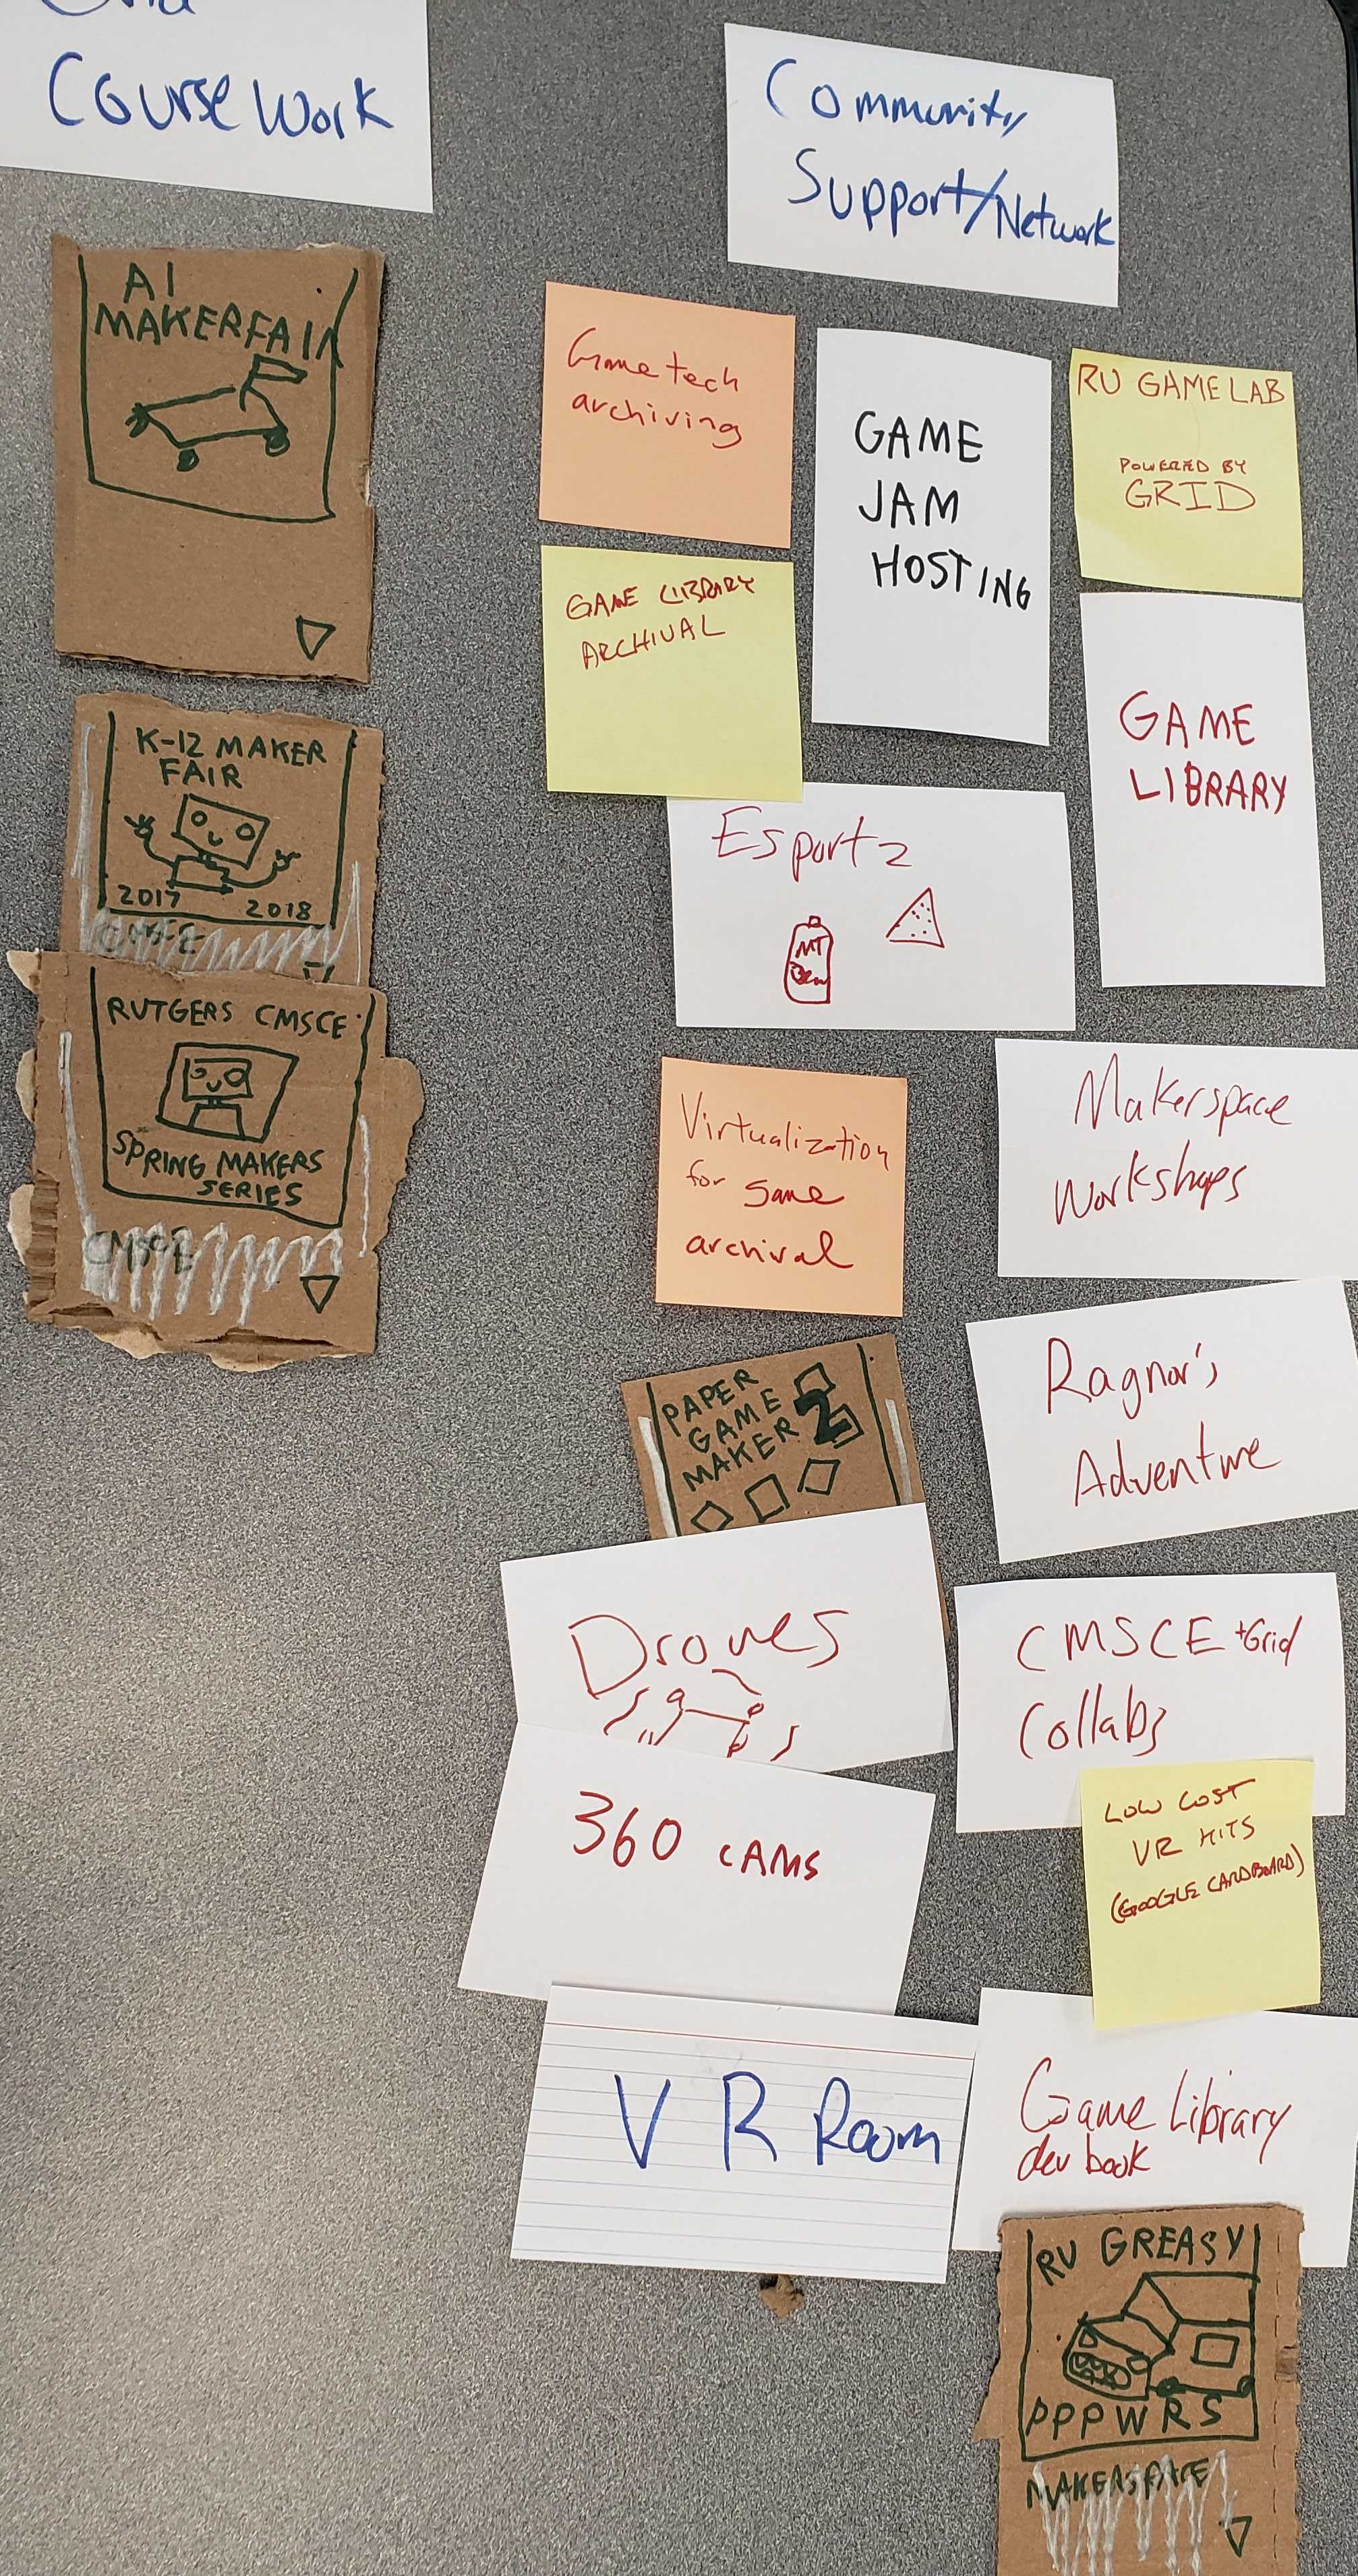 Course Work
Community
Support/Network
AI
MAKERFAIR
K-12 MAKER
FAIR
2017 2018
CMSCE
RUTGERS CMSCE
SPRING MAKERS
SERIES
CMSCE
Game tech
archiving
GAME
JAM
HOSTING
RU GAME LAB
POWERED BY
GRID
GAME LIBRARY
ARCHIVAL
GAME
LIBRARY
Esportz
MT
Dew
Virtualization
for game
archival
Makerspace
Workshops
PAPER
GAME
MAKER 2
Ragnar's
Adventure
Drones
CMSCE +Grid
Collabs
360 CAMS
LOW COST
VR KITS
(GOOGLE CARDBOARD)
VR Room
Game Library
dev book
RU GREASY
PPPWRS
MAKERSPACE